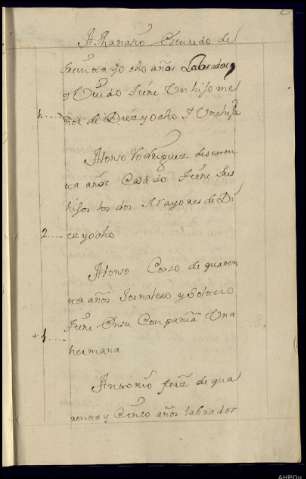 Athanasio Escudo de
treinta y ocho años Labrador,
y Viudo tiene Un hijo me
1.... nor de Diez y ocho y Una hija
Alonso Rodriguez de cinquen
ta años Casado tiene seis
hijos los dos Mayores de Di
2.... ez y ocho
Alonso Corzo de quaren
ta años Jornalero y Soltero
tiene En su Compañia Una
+1.... hermana
Antonio frnz de qua
renta y Cinco años labrador
AHPOU